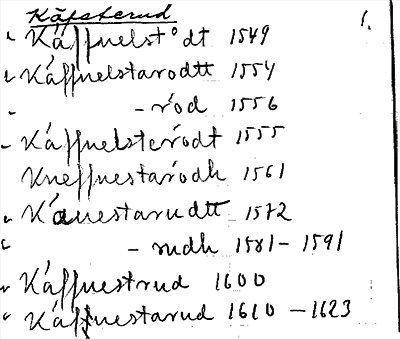 Käfsterud 1.
Käffuelstödt 1549
Käffuelstarodtt 1554
- rod 1556
Käffuelsterodt 1555
Kneffuestarodh 1561
Kauestarudtt 1572
- rudh 1581-1591
Käffuestrud 1600
Käffuestarud 1610 - 1623